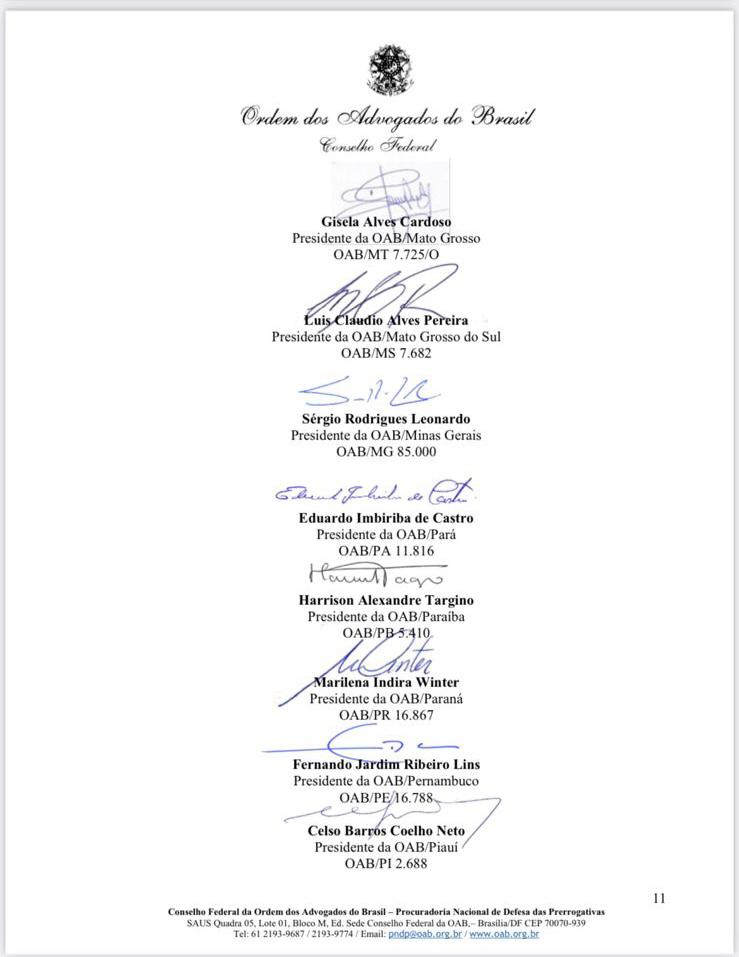 Ordem dos Advogados do Brasil
Conselho Federal
Gisela Alves Cardoso
Presidente da OAB/Mato Grosso
OAB/MT 7.725/O
Luis Claudio Alves Pereira
Presidente da OAB/Mato Grosso do Sul
OAB/MS 7.682
Sérgio Rodrigues Leonardo
Presidente da OAB/Minas Gerais
OAB/MG 85.000
Eduardo Imbiriba de Castro
Presidente da OAB/Pará
OAB/PA 11.816
Harrison Alexandre Targino
Presidente da OAB/Paraíba
OAB/PB 5.410
Marilena Indira Winter
Presidente da OAB/Paraná
OAB/PR 16.867
Fernando Jardim Ribeiro Lins
Presidente da OAB/Pernambuco
OAB/PE 16.788
Celso Barros Coelho Neto
Presidente da OAB/Piauí
OAB/PI 2.688
11
Conselho Federal da Ordem dos Advogados do Brasil – Procuradoria Nacional de Defesa das Prerrogativas
SAUS Quadra 05, Lote 01, Bloco M, Ed. Sede Conselho Federal da OAB,– Brasília/DF CEP 70070-939
Tel: 61 2193-9687 / 2193-9774 / Email: pndp@oab.org.br / www.oab.org.br